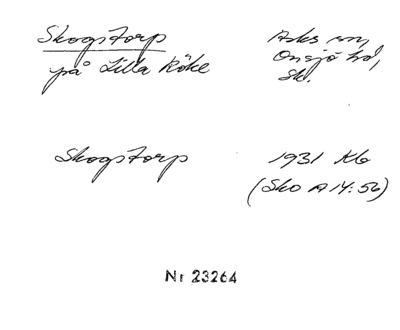 Skogstorp
på Lilla Röke
Asks sn,
Onsjö hd,
Sk.
Skogstorp
1931 Kb
(Sko A14:56)
Nr 23264